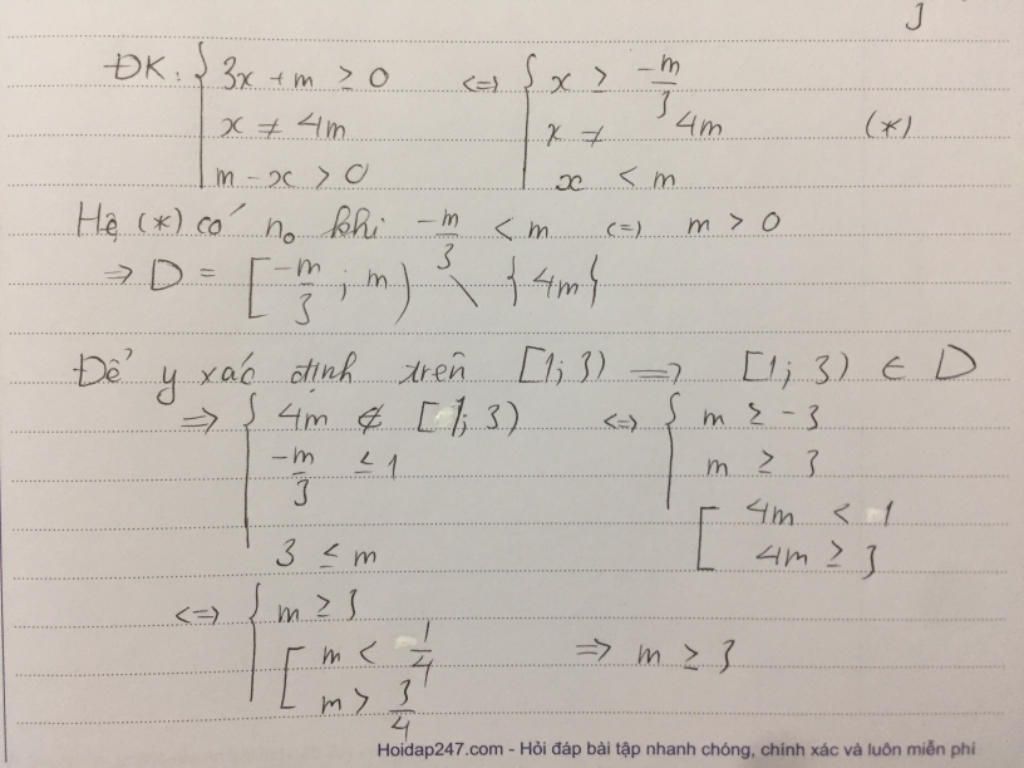 ĐK: { 3x + m ≥ 0 <=> { x ≥ -m/3
x ≠ 4m x ≠ 4m (*)
m - x > 0 x < m
Hệ (*) có n₀ khi -m/3 < m <=> m > 0
=> D = [-m/3 ; m) \ {4m}
Để y xác định trên [1; 3) => [1; 3) ∈ D
=> { 4m ∉ [1; 3) <=> { m ≥ -3
-m/3 ≤ 1 m ≥ 3
3 ≤ m [ 4m < 1
4m ≥ 3
<=> { m ≥ 3
[ m < 1/4 => m ≥ 3
m > 3/4
Hoidap247.com - Hỏi đáp bài tập nhanh chóng, chính xác và luôn miễn phí